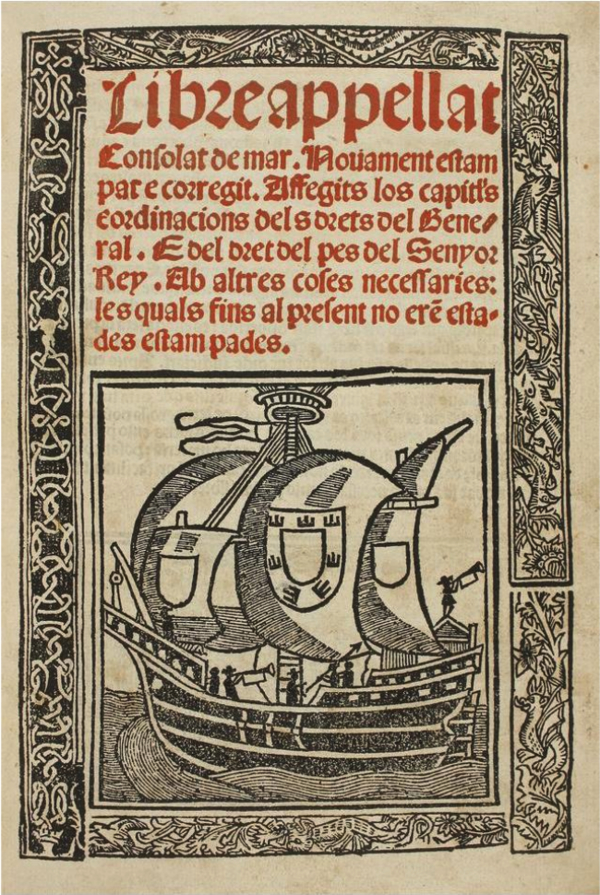 Libre appellat
Consolat de mar. Nouament estam
pat e corregit. Affegits los capitl's
e ordinacions dels drets del Gene/
ral. E del dret del pes del Senyor
Rey. Ab altres coses necessaries:
les quals fins al present no erē esta-
des estam pades.